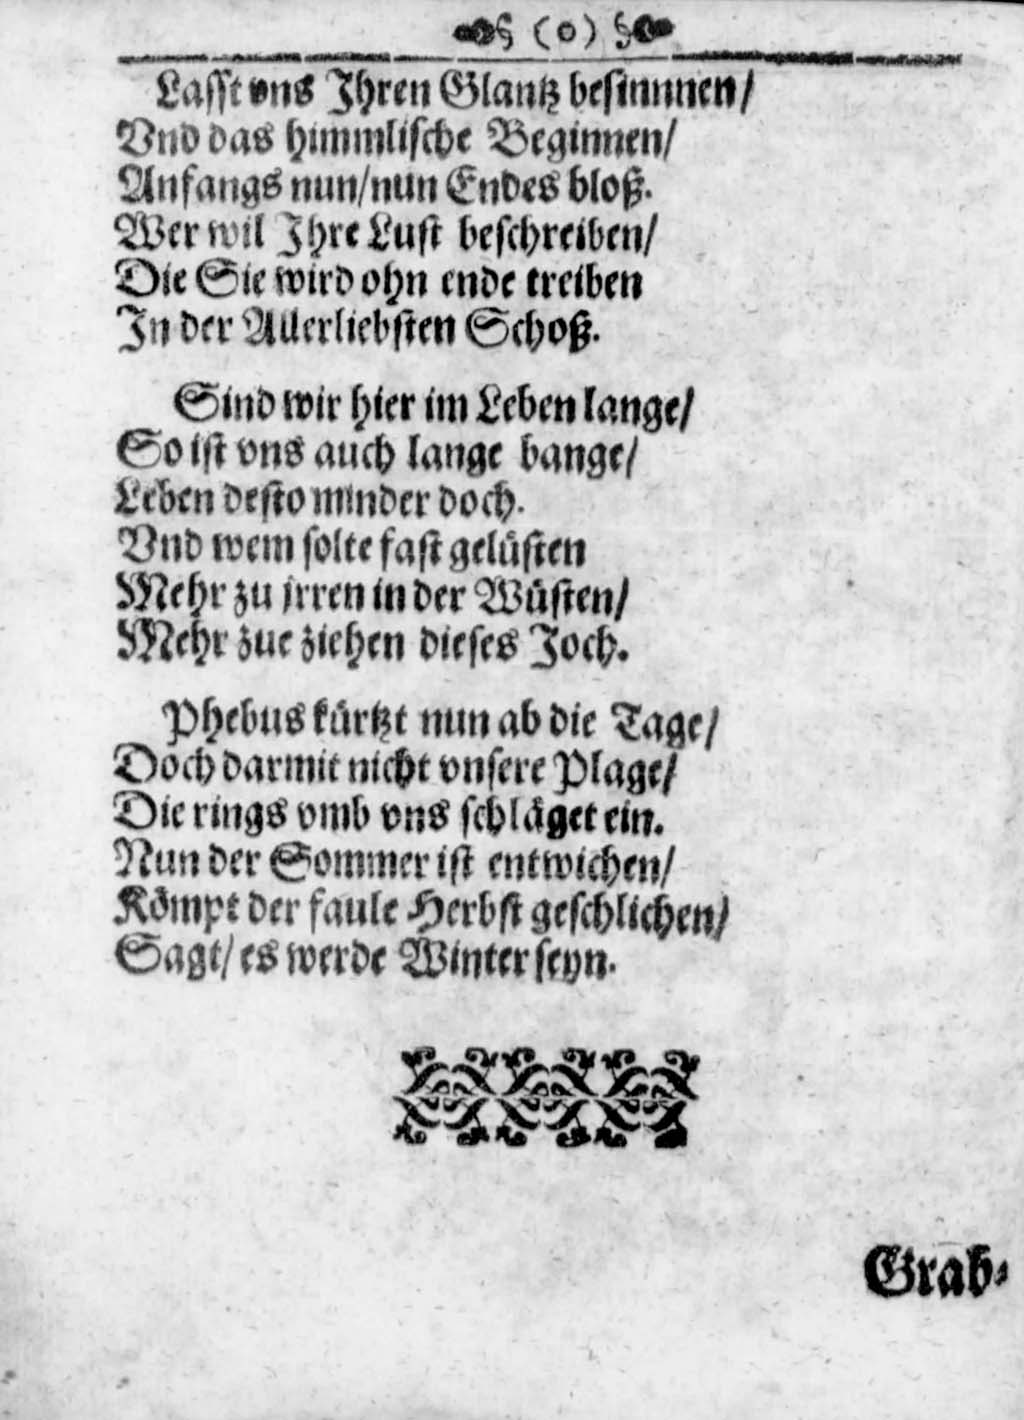 § (o) §
Lasst vns Ihren Glantz besinnnen/
Vnd das himmlische Beginnen/
Anfangs nun/nun Endes bloß.
Wer wil Ihre Lust beschreiben/
Die Sie wird ohn ende treiben
In der Allerliebsten Schoß.
Sind wir hier im Leben lange/
So ist vns auch lange bange/
Leben desto minder doch.
Vnd wem solte fast gelüsten
Mehr zu jrren in der Wüsten/
Mehr zue ziehen dieses Joch.
Phebus kürtzt nun ab die Tage/
Doch darmit nicht vnsere Plage/
Die rings vmb vns schläget ein.
Nun der Sommer ist entwichen/
Kömpt der faule Herbst geschlichen/
Sagt/ es werde Winter seyn.
Grab-